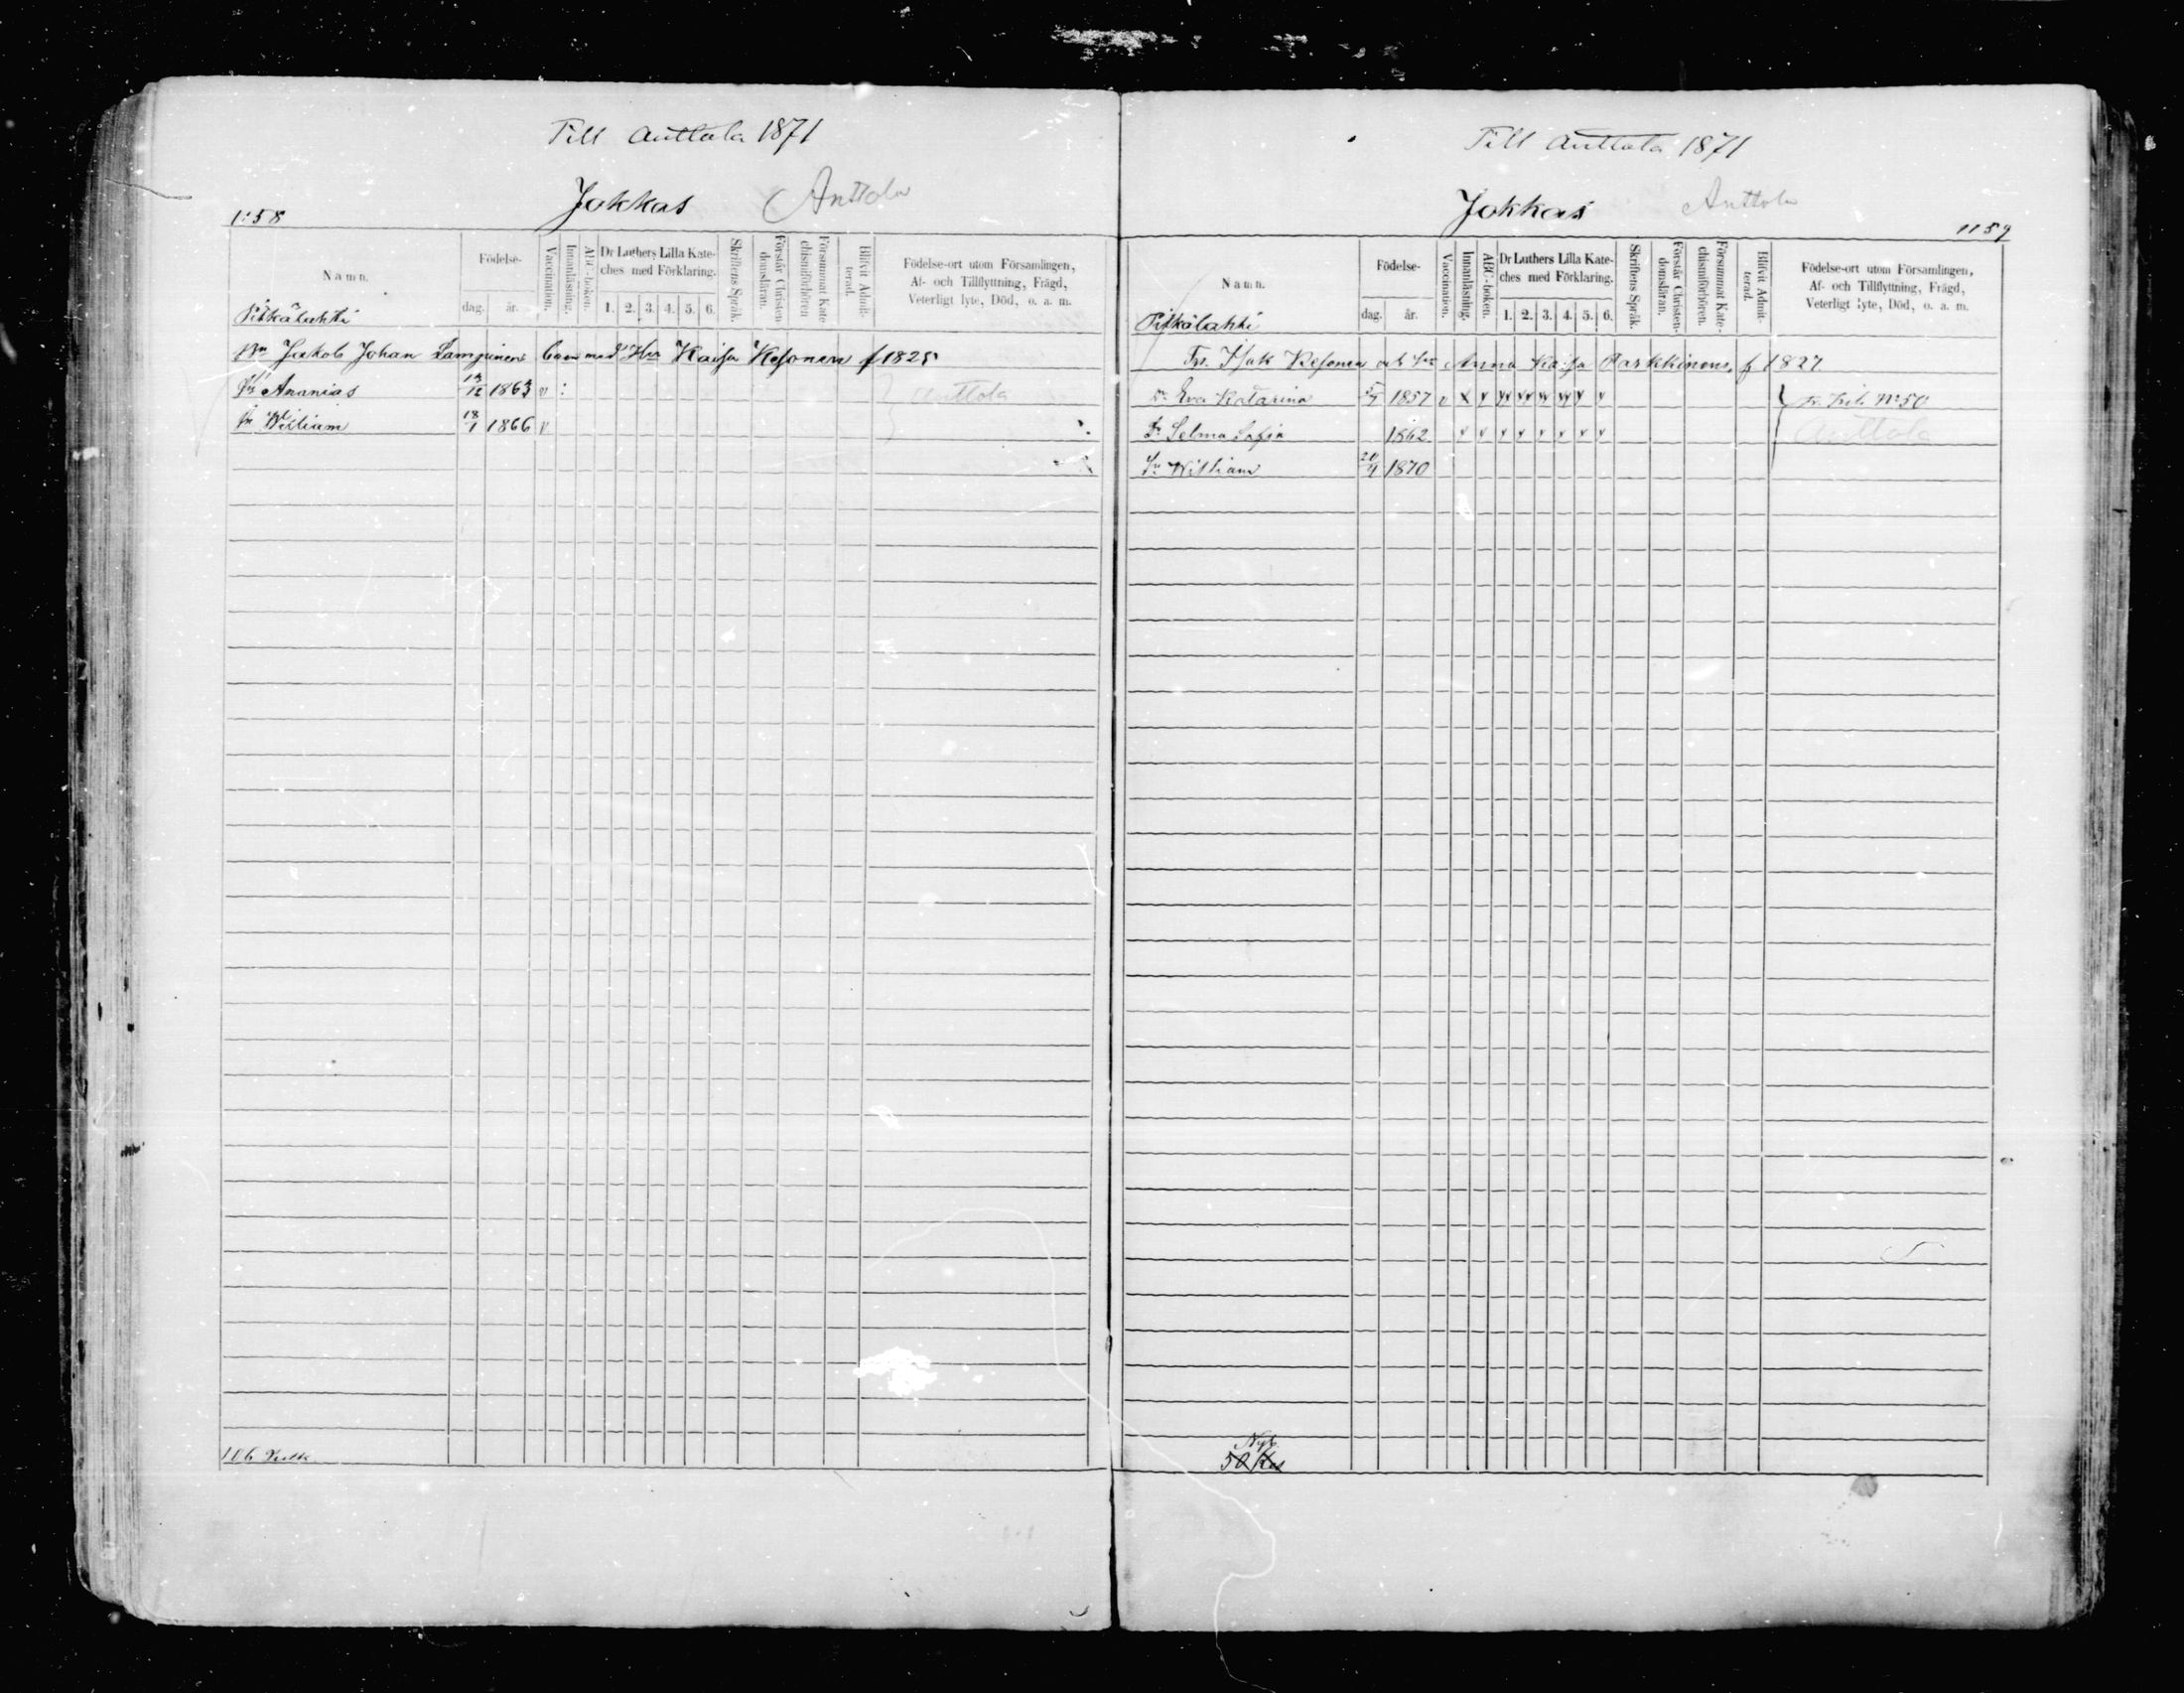 Till Anttola 1871
Jokkas Anttola
1158
Namn.
Födelse-
dag. år.
Vaccination.
Innanläsning.
ABC-boken.
Dr Luthers Lilla Kate-
ches med Förklaring.
1. 2. 3. 4. 5. 6.
Skriftens Språk.
Förstår Christen-
domsläran.
Försummat Kate
chismiförhören
Blifvit Admit-
terad.
Födelse-ort utom Församlingen,
Af- och Tillflyttning, Frägd,
Veterligt lyte, Död, o. a. m.
Pitkälahti
Jakob Johan Lampinens barn med Kaisa Kesonen f 1825
Ananias 12 1863 v Anttola
William 18/1 1866 v
106 Kulk
Till Anttola 1871
Jokkas Anttola
1159
Namn.
Födelse-
dag. år.
Vaccination.
Innanläsning.
ABC-boken.
Dr Luthers Lilla Kate-
ches med Förklaring.
1. 2. 3. 4. 5. 6.
Skriftens Språk.
Förstår Christen-
domsläran.
Försummat Kate-
chismiförhören.
Blifvit Admit-
terad.
Födelse-ort utom Församlingen,
Af- och Tillflyttning, Frägd,
Veterligt lyte, Död, o. a. m.
Pitkälahti
Isak Kesonen och Anna Kaisa Parkkinens f 1827
Eva Katarina 1857 v x v v v v v v v No 50
Selma Sofia 1862 v v v v v v v v Anttola
William 1870
Nyb.
50 Kes